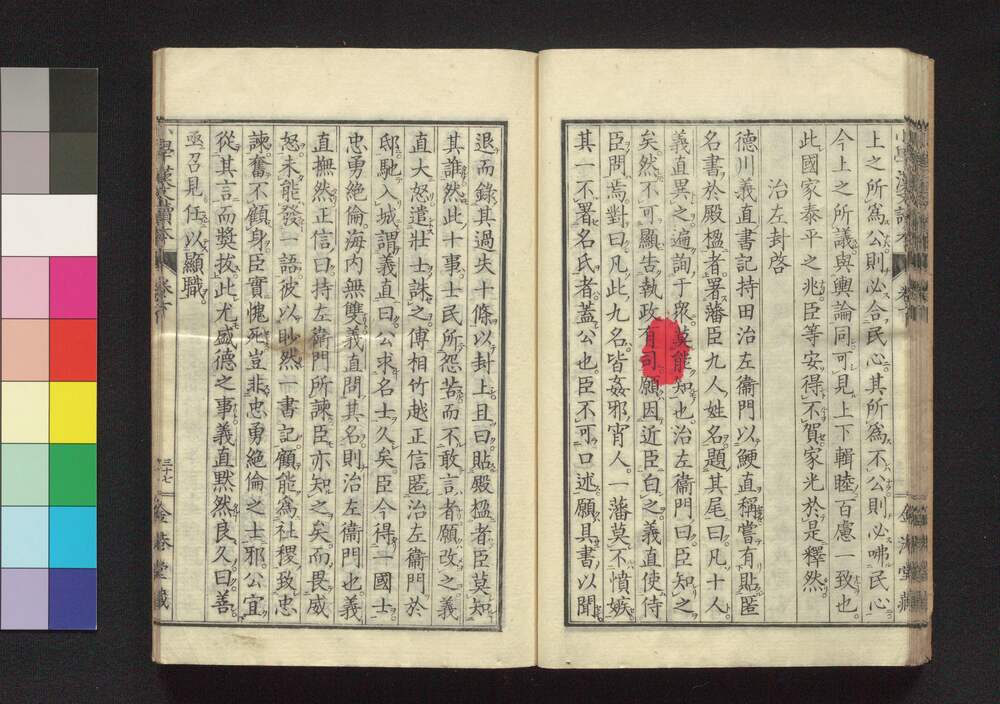 上之所爲公則必合民心其所爲不公則必咈民心
今上之所議與輿論同可見上下輯睦百慮一致也
此國家泰平之兆臣等安得不賀家光於是釋然
治左封啓
德川義直書記持田治左衞門以鯁直稱嘗有貼匿
名書於殿楹者署藩臣九人姓名題其尾曰凡十人
義直異之遍詢于衆莫能知也治左衞門曰臣知之
矣然不可顯告執政有司願因近臣白之義直使侍
臣問焉對曰凡此九名皆姦邪宵人一藩莫不憤嫉
其一不署名氏者蓋公也臣不可口述願具書以聞
退而錄其過失十條以封上且曰貼殿楹者臣莫知
其誰然此十事士民所怨苦而不敢言者願改之義
直大怒遣壯士誅之傅相竹越正信匿治左衞門於
邸馳入城謂義直曰公求名士久矣臣今得一國士
忠勇絕倫海內無雙義直問其名則治左衞門也義
直撫然正信曰持左衞門所諫臣亦知之矣而畏威
怒未能發一語彼以眇然一書記顧能爲社稷致忠
諫奮不顧身臣實愧死豈非忠勇絕倫之士邪公宜
從其言而奬拔此尤盛德之事義直默然良久曰善
亟召見任以顯職
三十七